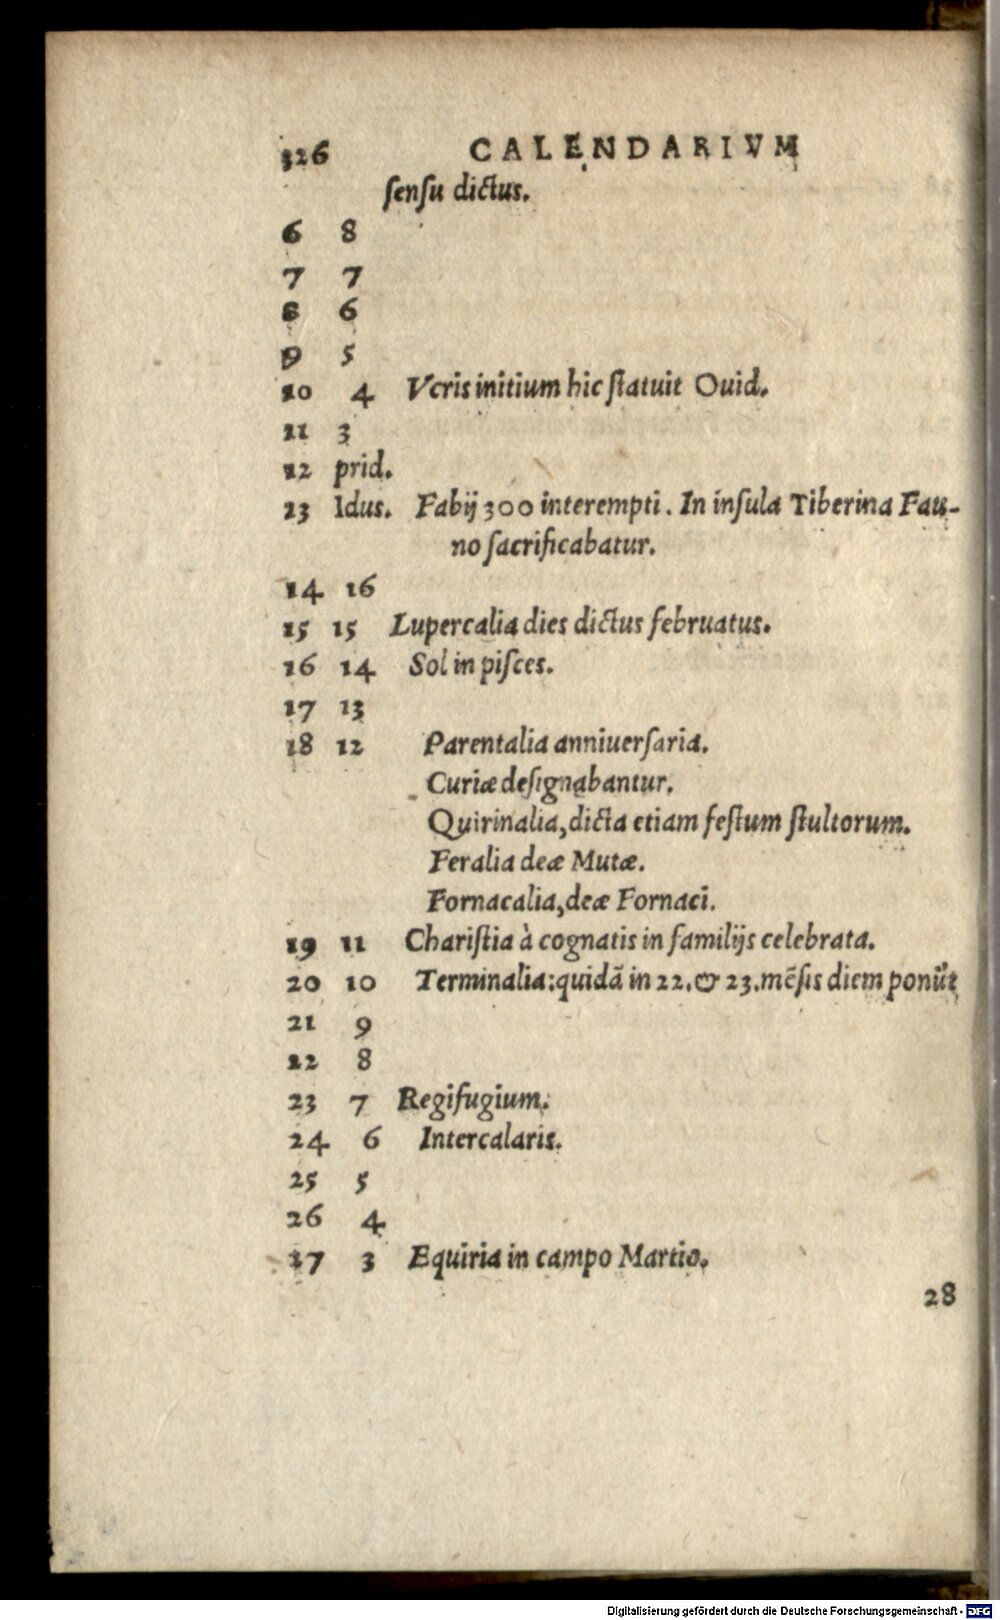 326 CALENDARIVM
ſenſu dictus.
6 8
7 7
8 6
9 5
10 4 Veris initium hic ſtatuit Ouid.
11 3
12 prid.
13 Idus. Fabij 300 interempti. In inſula Tiberina Fau-
no ſacrificabatur.
14 16
15 15 Lupercalia dies dictus februatus.
16 14 Sol in piſces.
17 13
18 12 Parentalia anniuerſaria.
Curiæ deſignabantur.
Quirinalia, dicta etiam feſtum ſtultorum.
Feralia deæ Mutæ.
Fornacalia, deæ Fornaci.
19 11 Chariſtia à cognatis in familijs celebrata.
20 10 Terminalia: quidã in 22. & 23. mẽſis diem ponũt
21 9
22 8
23 7 Regifugium.
24 6 Intercalaris.
25 5
26 4
27 3 Equiria in campo Martio.
28
Digitalisierung gefördert durch die Deutsche Forschungsgemeinschaft - DFG